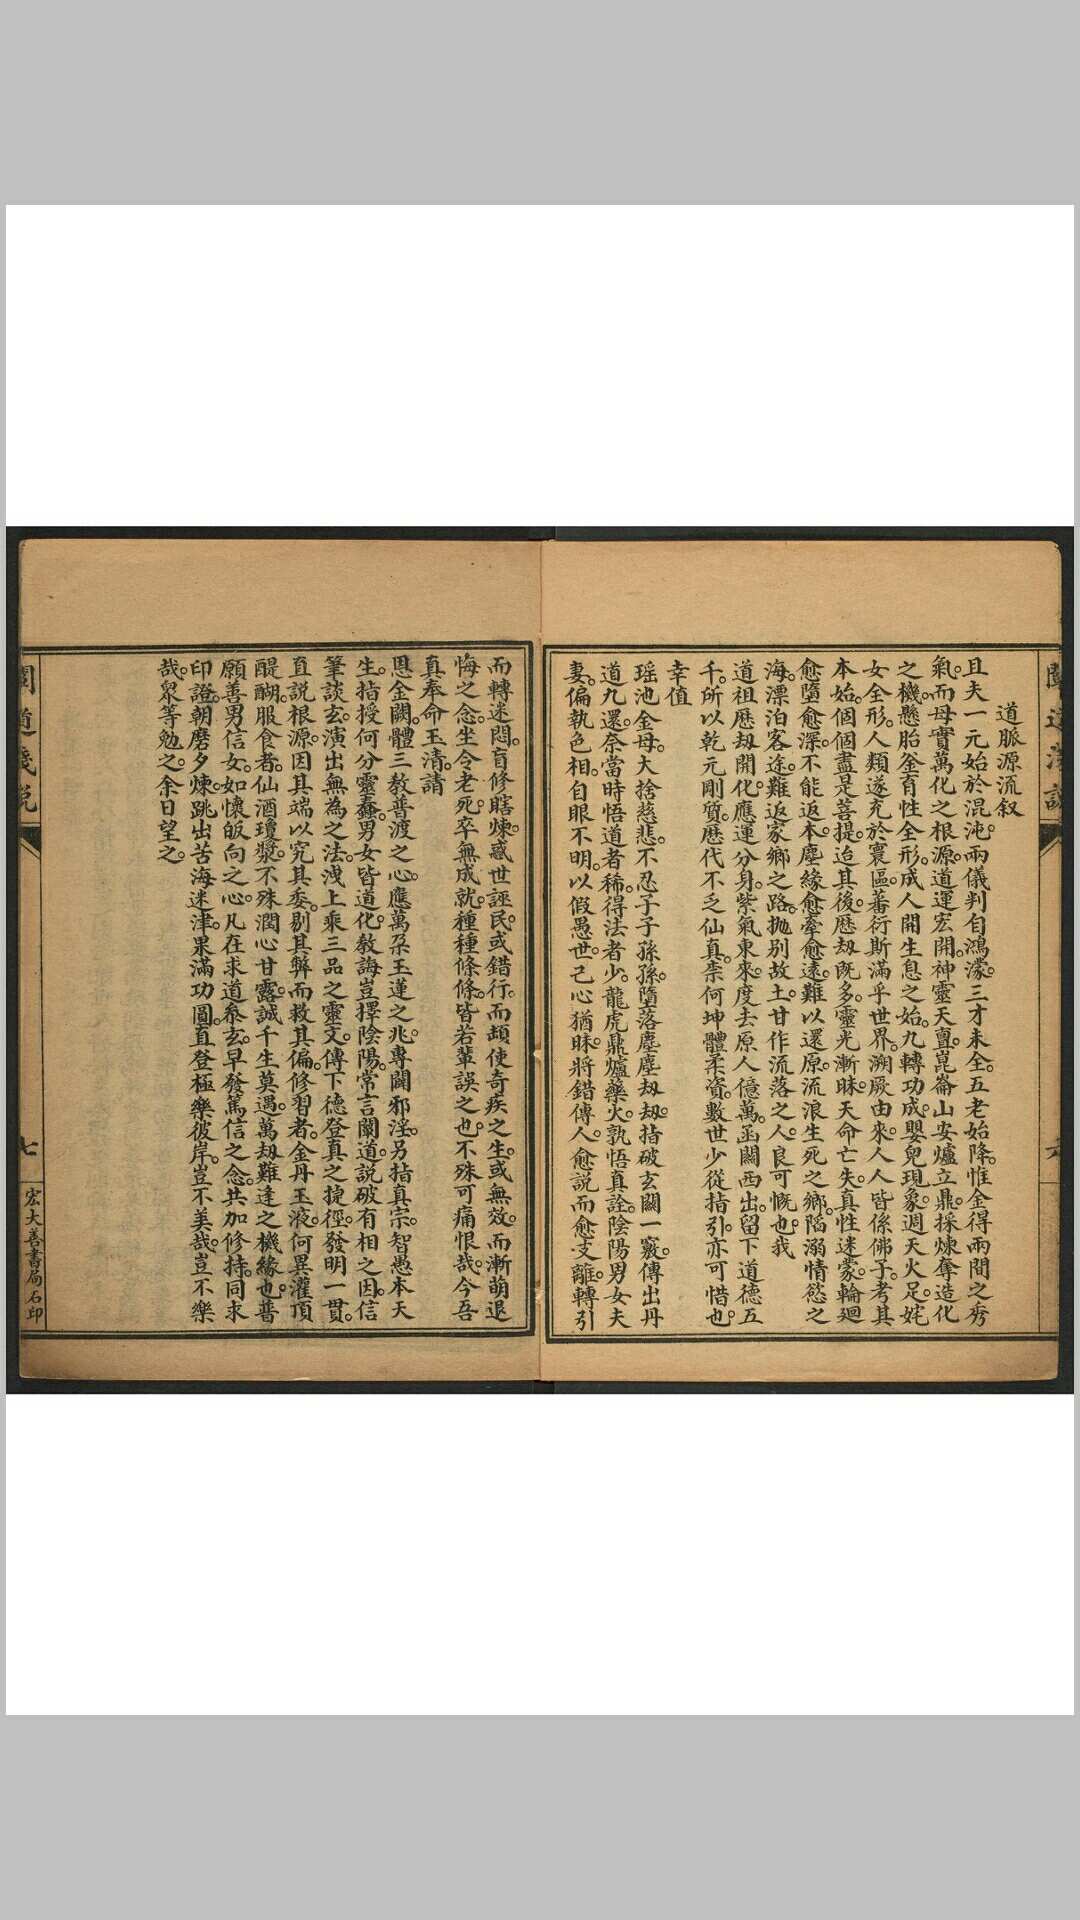 道脈源流叙
且夫一元始於混沌。兩儀判自鴻濛。三才未全。五老始降。惟金得兩間之秀
氣。而母實萬化之根源。道運宏開。神靈天亶。崑崙山安爐立鼎。採煉奪造化
之機。懸胎釜育性全形。成人開生息之始。九轉功成。嬰兒現象。週天火足。姹
女全形。人類遂充於寰區。蕃衍斯滿乎世界。溯厥由來。人人皆係佛子。考其
本始。個個盡是菩提。迨其後歷劫既多。靈光漸昧。天命亡失。真性迷蒙。輪廻
愈墮愈深。不能返本。塵緣愈牽愈遠。難以還原。流浪生死之鄉。陷溺情慾之
海。漂泊客途。難返家鄉之路。拋別故土。甘作流落之人。良可慨也。我
道祖歷劫開化。應運分身。紫氣東來。度去原人億萬。函關西出。留下道德五
千。所以乾元剛質。歷代不乏仙真。柰何坤體柔資。數世少從指引。亦可惜也。
幸值
瑶池金母。大捨慈悲。不忍子子孫孫。墮落塵塵劫劫。指破玄關一竅。傳出丹
道九還。奈當時悟道者稀。得法者少。龍虎鼎爐藥火。孰悟真詮。陰陽男女夫
妻。偏執色相。自眼不明。以假愚世。己心猶昧。將錯傳人。愈説而愈支離。轉引
而轉迷悶。盲修瞎煉。惑世誣民。或錯行。而頡使奇疾之生。或無效。而漸萌退
悔之念。坐令老死。卒無成就。種種條條。皆若輩誤之也。不殊可痛恨哉。今吾
真奉命玉清。請
恩金闕。體三教普渡之心。應萬朶玉蓮之兆。專闢邪淫。另指真宗。智愚本天
生。指授何分靈蠢。男女皆道化。教誨豈擇陰陽。常言闡道。説破有相之因。信
筆談玄。演出無為之法。洩上乘三品之靈文。傳下德登真之捷徑。發明一貫。
直説根源。因其端以究其委。剔其弊而救其偏。修習者。金丹玉液。何異灌頂
醍醐。服食者。仙酒瓊漿。不殊潤心甘露。誠千生莫遇。萬劫難逢之機緣也。普
願善男信女。如懷皈向之心。凡在求道叅玄。早發篤信之念。共加修持。同求
印證。朝磨夕煉。跳出苦海迷津。果滿功圓。直登極樂彼岸。豈不美哉。豈不樂
哉。衆等勉之。余日望之。
七
宏大善書局石印